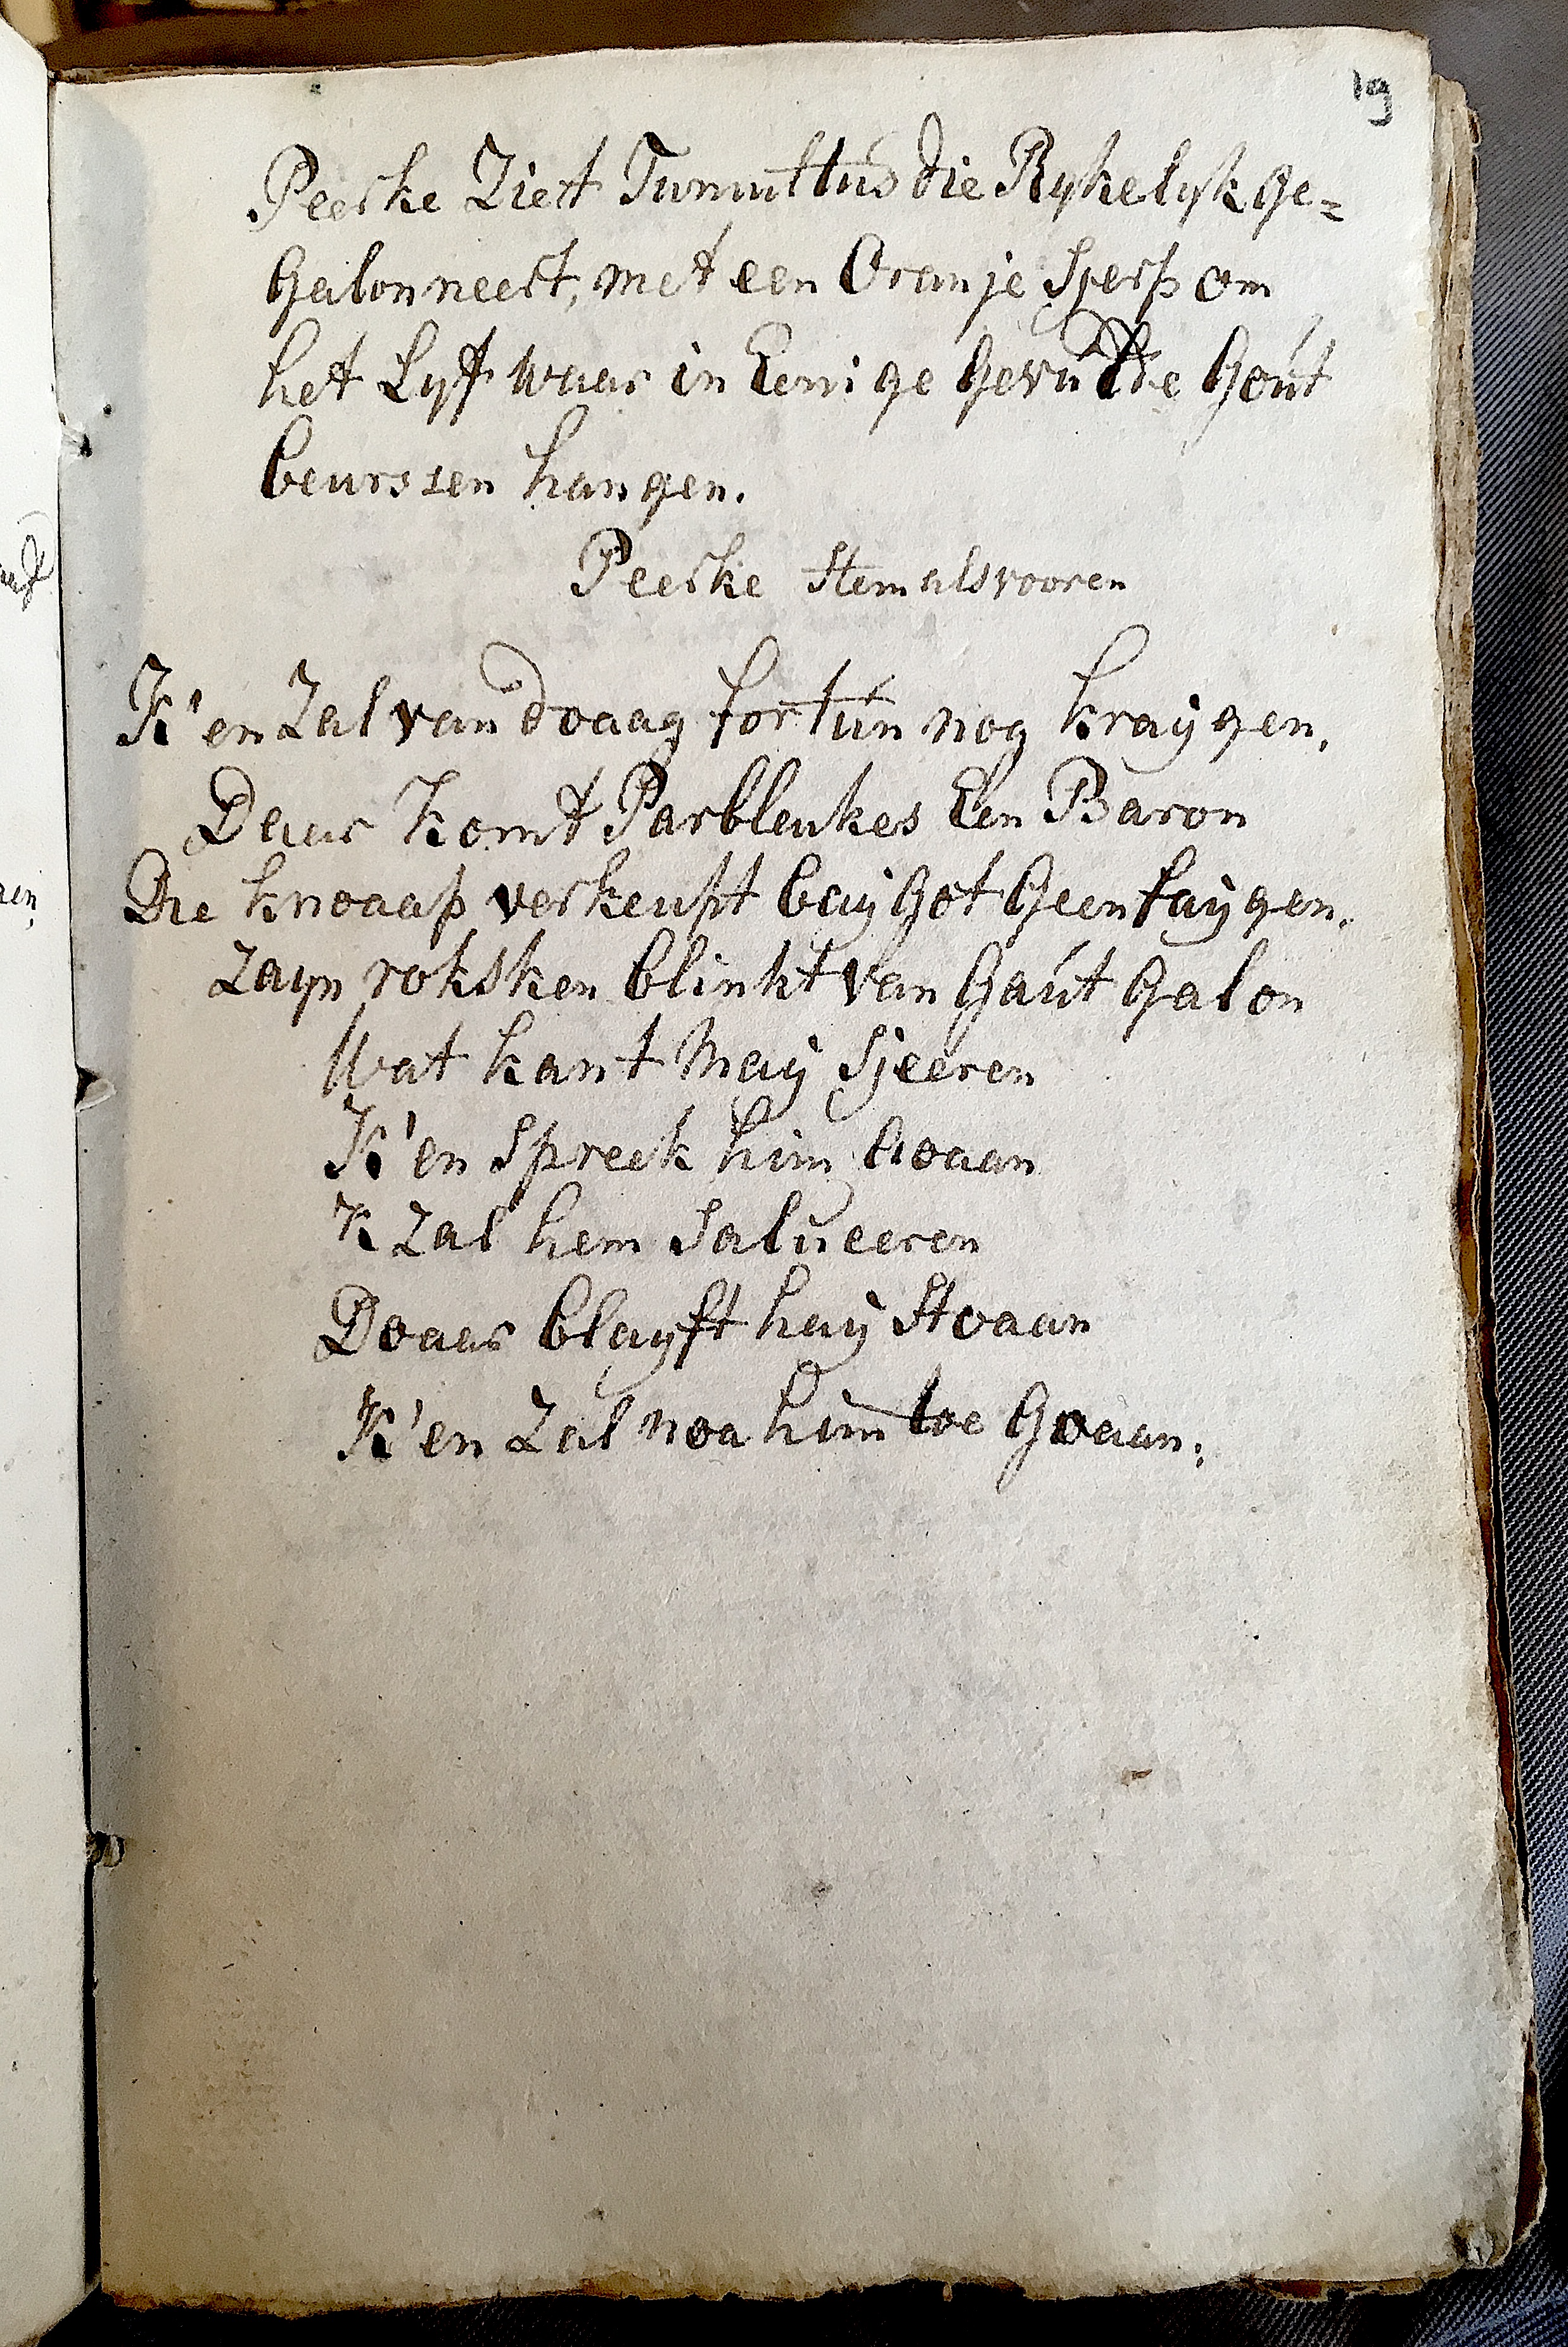 19
Peerke Ziet Tumultus die Rykelyk ge=
Galonneert, met een Oranje Sjerp om
het Lyf waar in Eenige Gevulde Gout
beurssen hangen.
Peerke Stem als vooren
K'en Zal van doaag fortun nog kraÿgen,
Daar Komt Parbleukes Een Baron
Die knoaap verkeupt baÿ Got Geen faÿgen.
Zayn roksken blinkt van Gaut Galon
Wat kant Maÿ Sjeeren
K'en Spreek him Aoaan
K Zal hem Salueeren
Doaar blayft haÿ Stoaan
K'en Zal noa him toe Goaan;